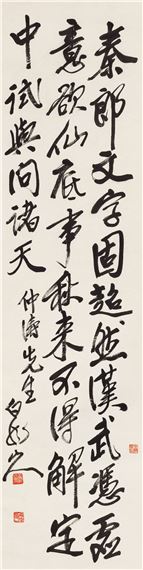 秦郎文字固超然漢武憑虛
意欲仙底事秋来不得解定
中試與問諸天
仲濤先生
白龍山人